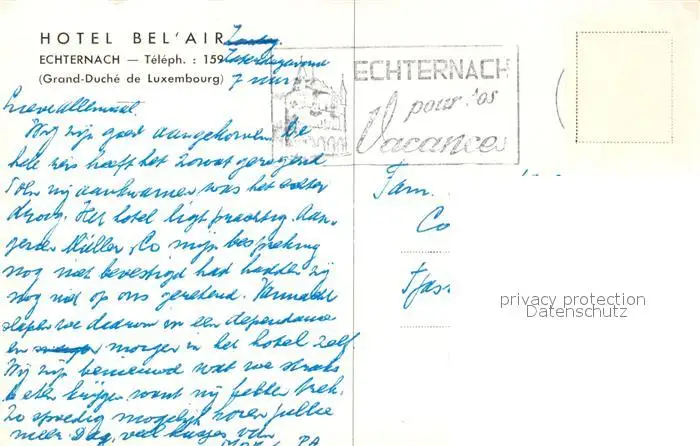 HOTEL BEL'AIR
ECHTERNACH — Téléph. : 159
(Grand-Duché de Luxembourg)
Zondag
Zaterdagavond
7 uur
ECHTERNACH
pour vos
Vacances
Lieve allemaal.
Wij zijn goed aangekomen. De
hele reis heeft het zowat geregend
Toen wij aankwamen was het echter
droog. Het hotel ligt prachtig. Aan-
gezien Müller & Co mijn bespreking
nog niet bevestigd had hadden zij
nog niet op ons gerekend. Vannacht
slapen we daarom in een dependance
en morgen in het hotel zelf.
Wij zijn benieuwd wat we straks
te eten krijgen want wij hebben trek.
Zo spoedig mogelijk horen jullie
meer. Dag, veel kusjes van
PA
Fam.
Co
privacy protection
Datenschutz